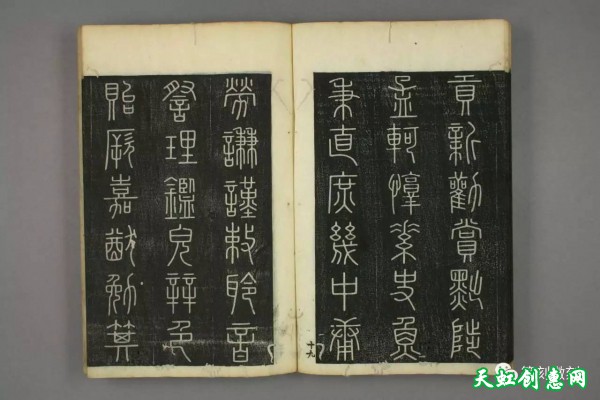 貢新勸賞黜陟
孟軻惇素史魚
秉直庶幾中庸
勞謙謹敕聆音
察理鑑皃辯色
貽厥嘉猷勉其
十九
天虹创惠网